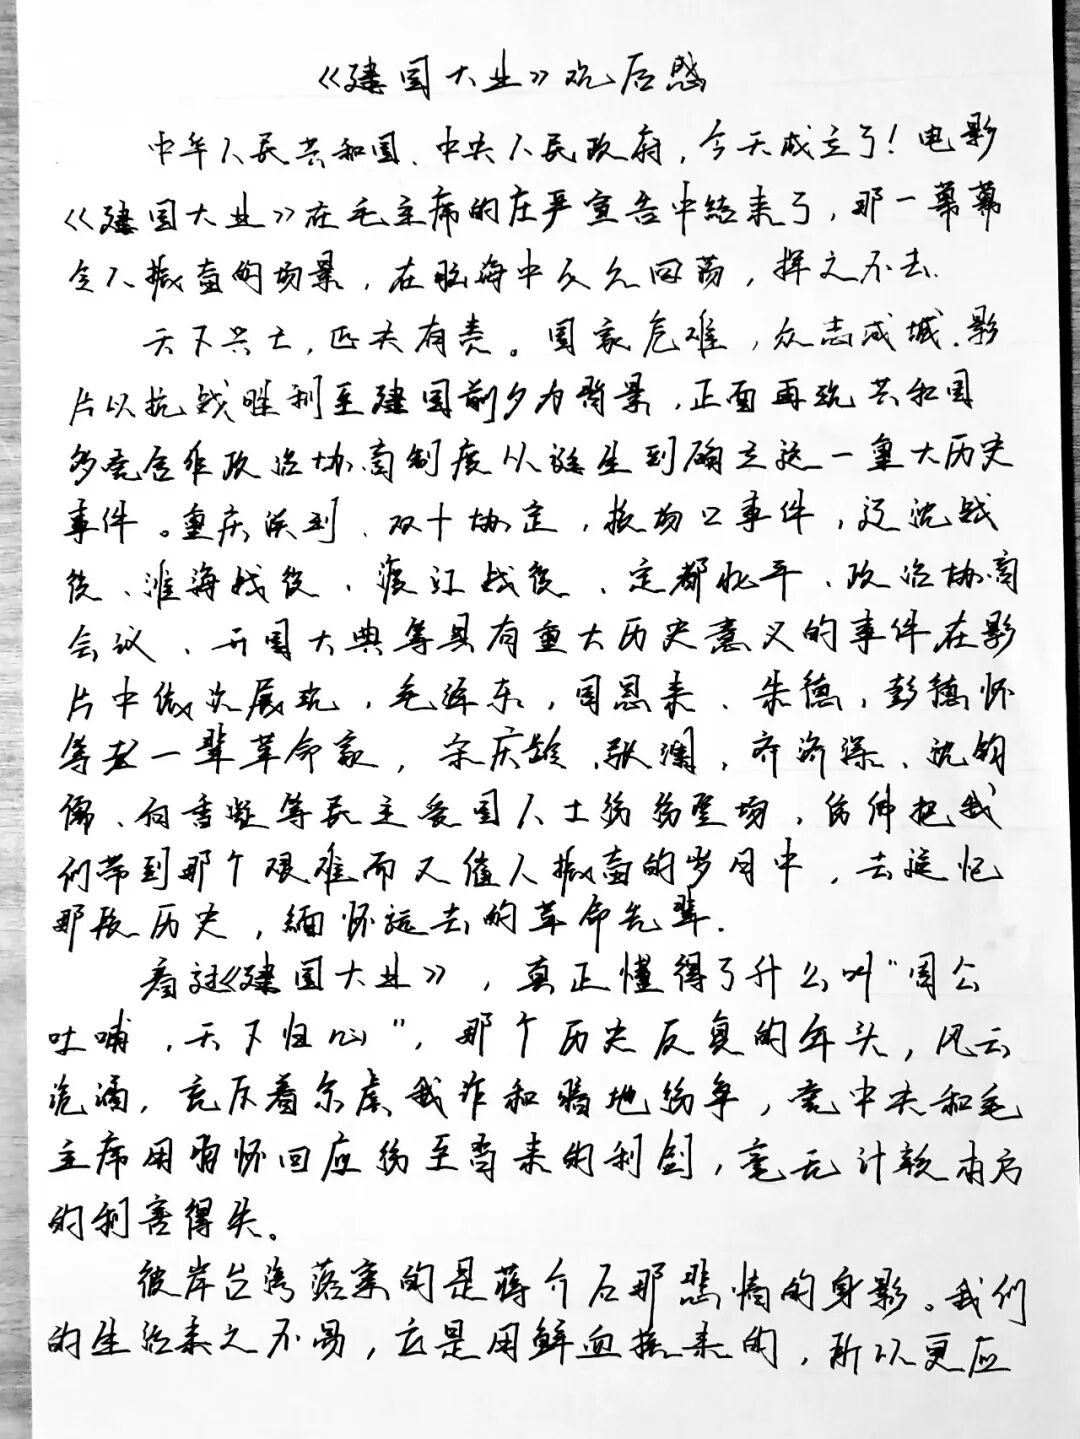 《建国大业》观后感
中华人民共和国、中央人民政府，今天成立了！电影
《建国大业》在毛主席的庄严宣告中结束了，那一幕幕
令人振奋的场景，在脑海中久久回荡，挥之不去.
天下兴亡，匹夫有责。国家危难，众志成城.影
片以抗战胜利至建国前夕为背景，正面再现共和国
多党合作政治协商制度从诞生到确立这一重大历史
事件。重庆谈判、双十协定，校场口事件，辽沈战
役、淮海战役、渡江战役、定都北平、政治协商
会议、开国大典等具有重大历史意义的事件在影
片中依次展现，毛泽东，周恩来、朱德，彭德怀
等老一辈革命家，宋庆龄、张澜，李济深、沈钧
儒、何香凝等民主爱国人士纷纷登场，仿佛把我
们带到那个艰难而又值人振奋的岁月中，去追忆
那段历史，缅怀远去的革命先辈.
看过《建国大业》，真正懂得了什么叫“周公
吐哺，天下归心”，那个历史反复的年头，风云
诡谲，充斥着尔虞我诈和弱地纷争，党中央和毛
主席用胸怀回应纷至沓来的利剑，毫无计较本方
的利害得失。
彼岸台湾落寞的是蒋介石那悲情的身影。我们
的生活来之不易，它是用鲜血换来的，所以更应